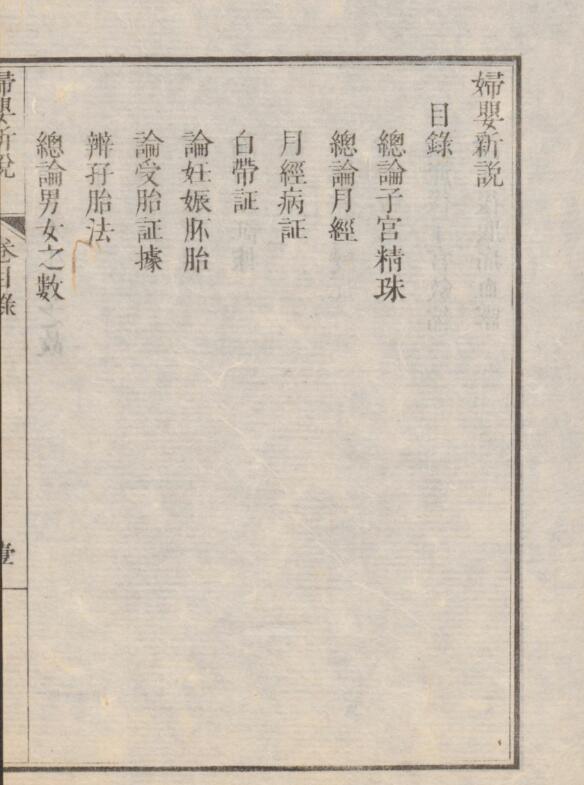 婦嬰新說
目錄
總論子宮精珠
總論月經
月經病証
白帶証
論妊娠胚胎
論受胎証據
辨孖胎法
總論男女之數
婦嬰新說
卷目錄
壹